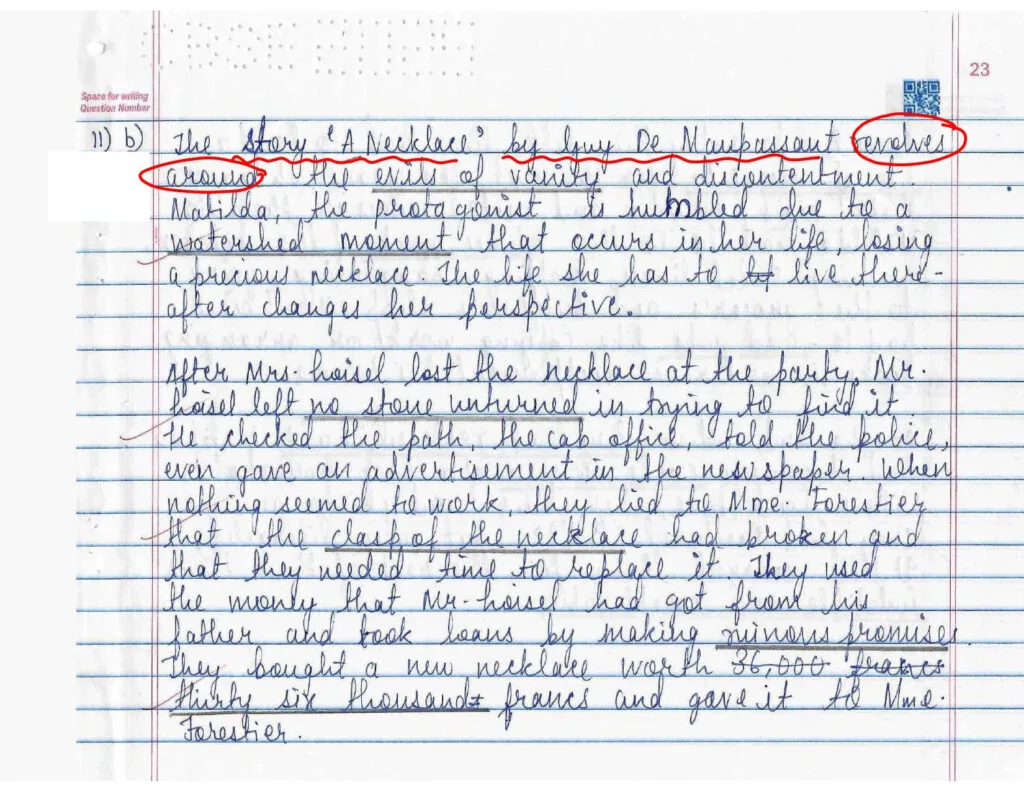 CBSE
23
Space for writing
Question Number
11) b) The story 'A Necklace' by Guy De Maupassant revolves
around the evils of vanity and discontentment.
Matilda, the protagonist is humbled due to a
watershed moment that occurs in her life, losing
a precious necklace. The life she has to live there-
after changes her perspective.
After Mrs. Loisel lost the necklace at the party, Mr.
Loisel left no stone unturned in trying to find it.
He checked the path, the cab office, told the police,
even gave an advertisement in the newspaper. When
nothing seemed to work, they lied to Mme. Forestier
that the clasp of the necklace had broken and
that they needed time to replace it. They used
the money that Mr. Loisel had got from his
father and took loans by making ruinous promises.
They bought a new necklace worth 36,000 francs
thirty six thousand francs and gave it to Mme.
Forestier.